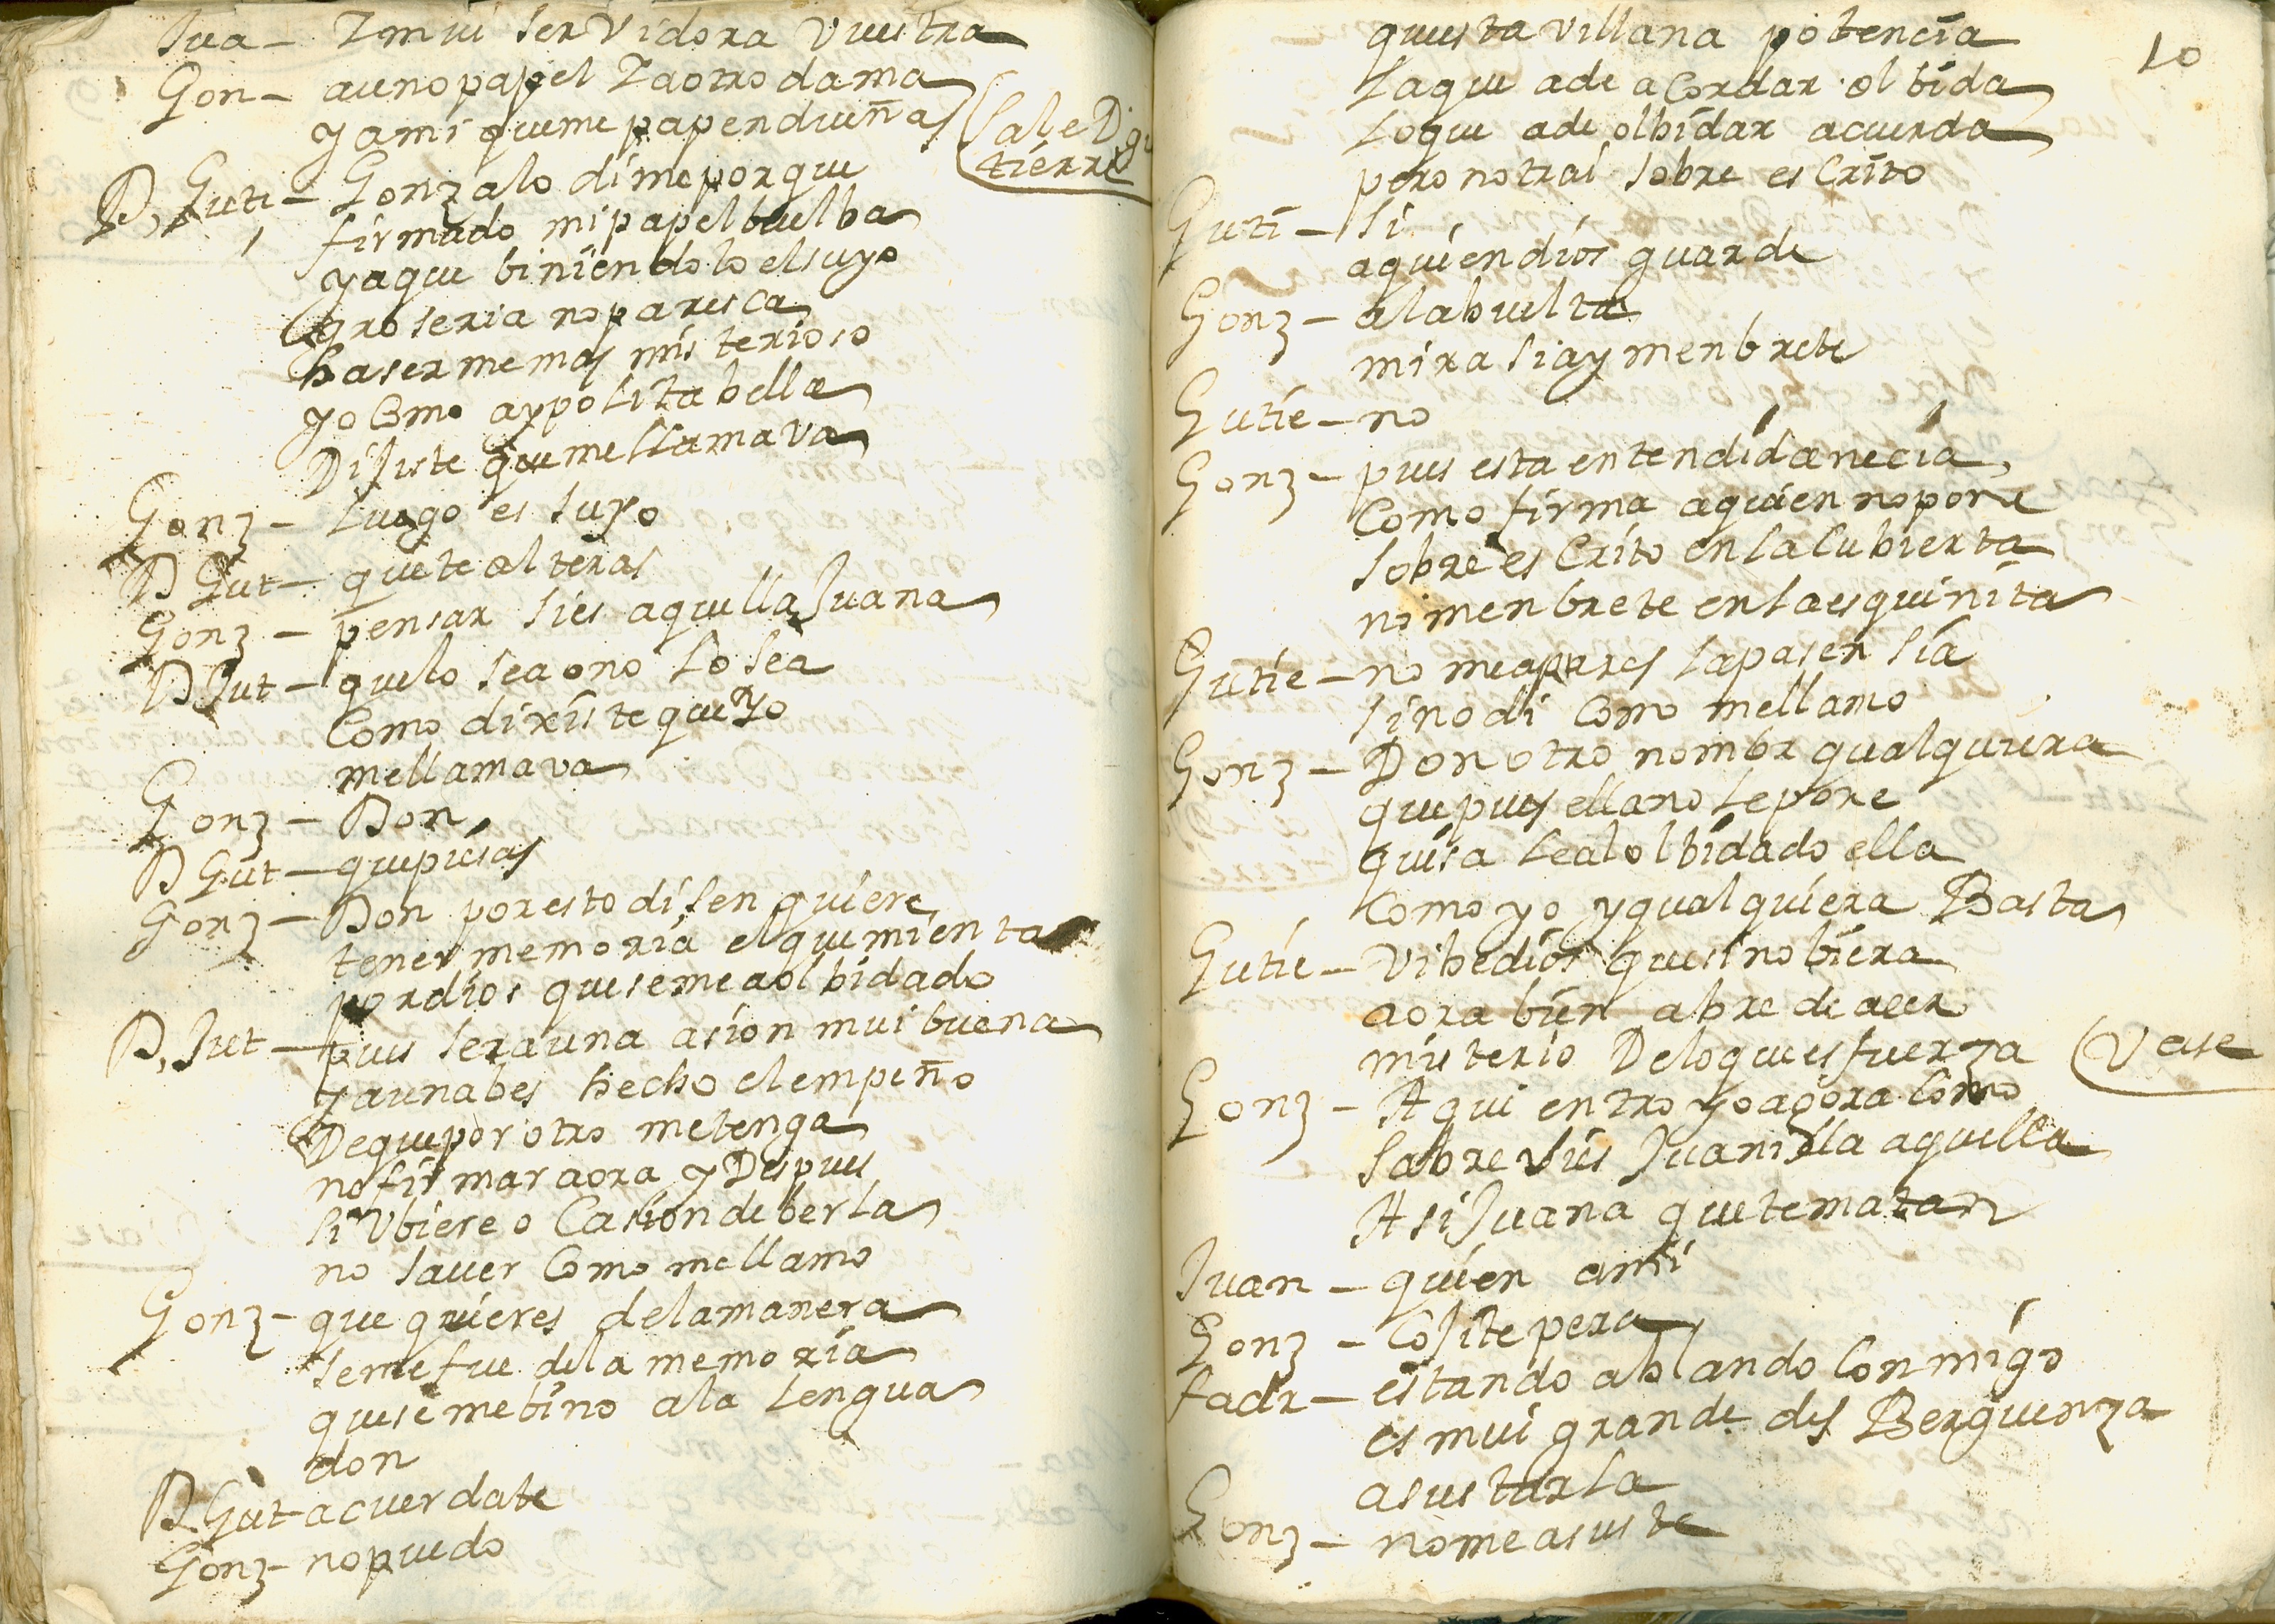 Jua – Y mui serVidora vuestra
Gon – auno papel Y aotro dama
y ami queme papen dueñas
(Sale D. gu
tierre
D, Guti – Gonzalo dime porque
firmado mi papel buelba
yaque biniendolo elsuyo
groseria no paresca
hasermemas misterioso
yo Como aypolita bella
Dijiste que mellamava
Gonz – Luego es suyo
D Gut – quete alteras
Gonz – pensar sies aquella Juana
D Gut – quelo sea ono Lo sea
Como dixiste que Yo
mellamava
Gonz – Don
D Gut – quepiesas
Gonz – Don por esto disen quiere
tener memoria elquemienta
pordios quesemeaolbidado
D, Gut – pues serauna asion mui buena
yaunabes hecho elempeño
Dequepor otro metenga
nofirmar aora y Despues
si Ubiere o Casion de berla
no saver Como mellamo
Gonz – que quieres delamanera
semefue dela memoria
quesemebino ala Lengua
don
D. Gut – acuerdate
Gonz – nopuedo
10
questa villana potencia
Laque ade aCordar olbida
Loque ade olbidar acuerda
pero notrai sobre esCrito
Guti – si
aquien dios guarde
Gonz – alabuelta
mira siay menbrete
Gutie – no
Gonz – pues esta entendida necia
Como firma aquien nopone
sobre esCrito enLaCubierta
nimenbrete enLaesquinita
Gutie – no meapures Lapasensia
sinodi Como mellamo
Gonz – Don otro nombr qualquiera
quepues ellano Lepone
quisa Lealolbidado ella
Como yo yqualquiera Basta
Gutie – Vibedios quesinobiera
aora bien abre de aeer
misterio Deloquees fuerza (Vase
Gonz – Aqui entro yoagora Como
sabre sies Juanilla aquella
A si Juana quetematan
Juan – quien ami
Gonz – Cojite pera
fadr – estando ablando Conmigo
es mui grande des Berguenza
asustarla
Gonz – nomeasuste